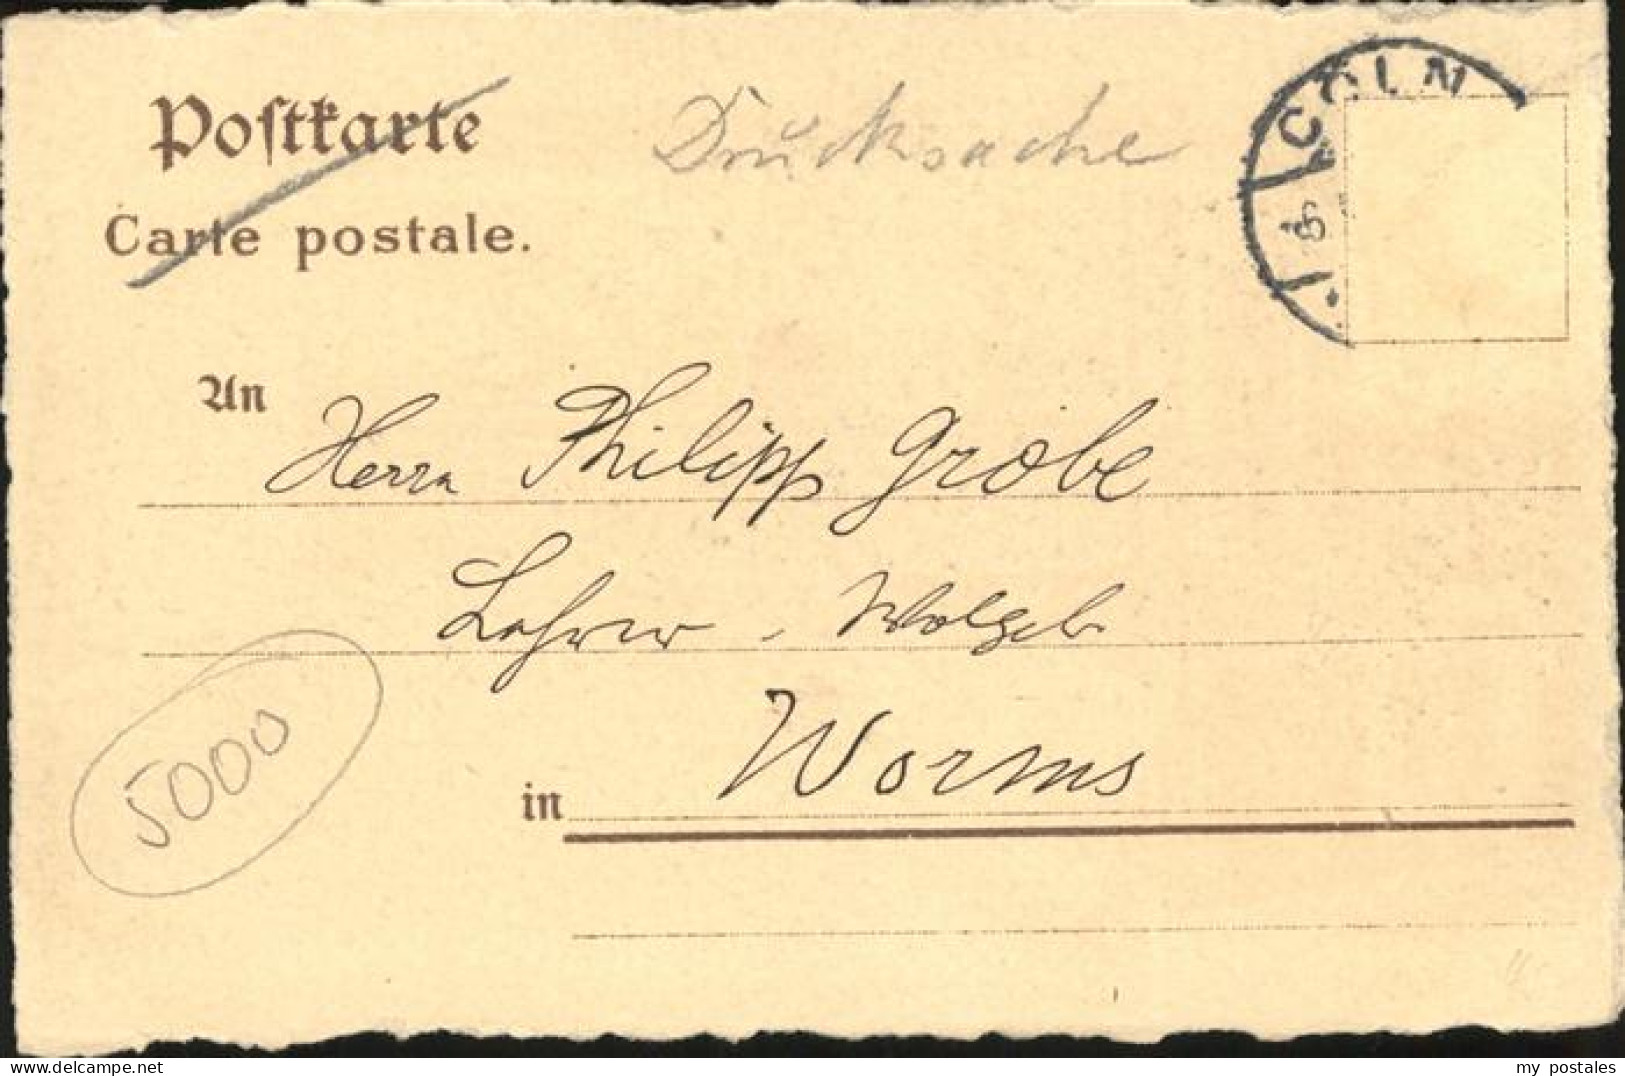 Postkarte
Drucksache
CÖLN
Carte postale.
An
Herrn Philipp Grobe
Lehrer
Worms
in
5000
my postales